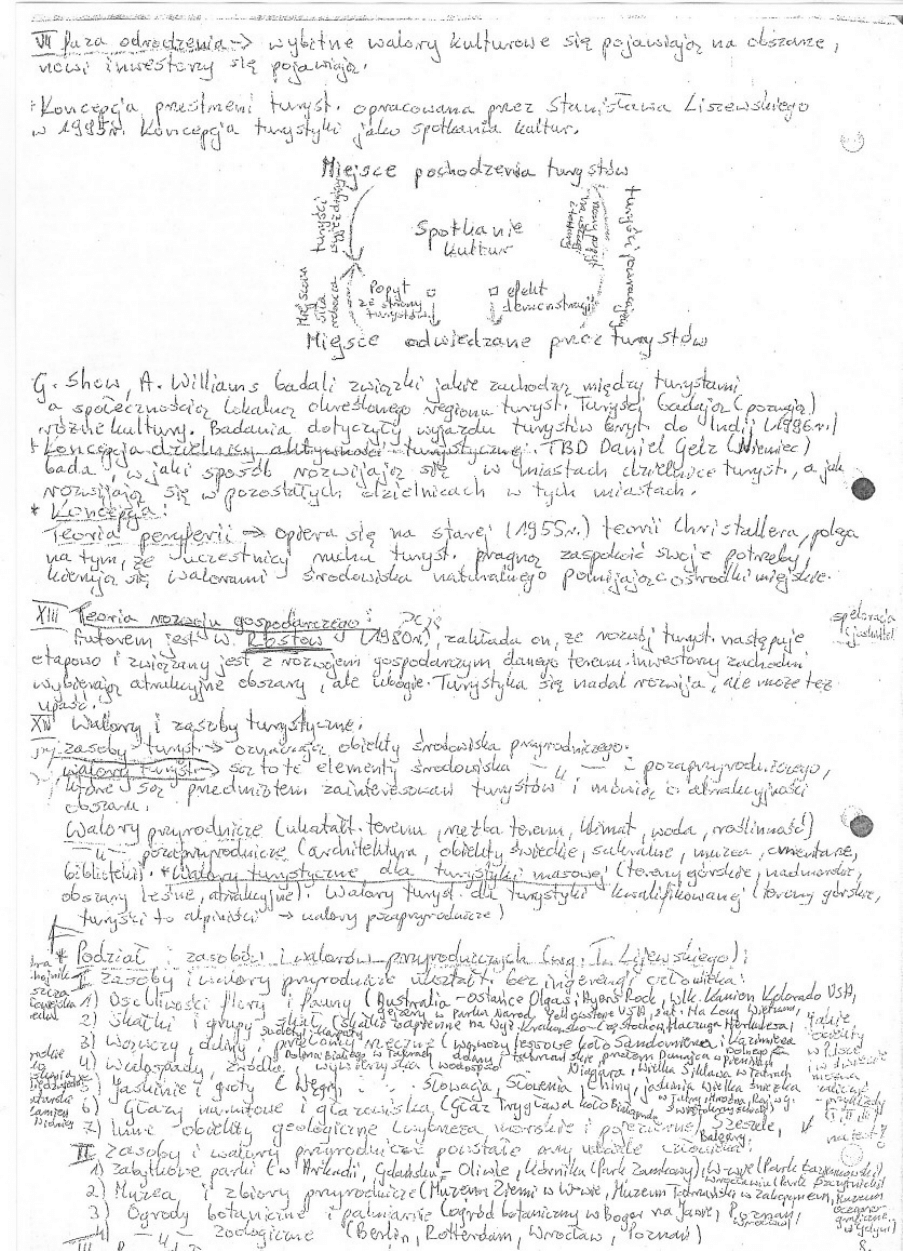 VII faza odrodzenia → wybitne walory kulturowe się pojawiają na obszarze,
nowi inwestorzy się pojawiają.
* Koncepcja przestrzeni turyst. opracowana przez Stanisława Liszewskiego
w 1995r. Koncepcja turystyki jako spotkania kultur.
Miejsce pochodzenia turystów
turyści
Spotkanie
kultur
turyści poznają
Miejscowa
siła
robocza
Popyt
ze strony
turystów
efekt
demonstracji
Miejsce odwiedzane przez turystów
G. Shew, A. Williams badali związki jakie zachodzą między turystami
a społecznością lokalną określonego regionu turyst. Turyści badają (poznają)
różne kultury. Badania dotyczyły wyjazdu turystów bryt. do Indii (1996r.)
* Koncepcja dzielnicy aktywności turystycznej. TBD Daniel Getz (Niemiec)
bada, w jaki sposób rozwijają się w miastach dzielnice turyst., a jak
rozwijają się w pozostałych dzielnicach w tych miastach.
* Koncepcja:
Teoria peryferii → opiera się na starej (1955r.) teorii Christallera, polega
na tym, że uczestnicy ruchu turyst. pragną zaspokoić swoje potrzeby,
kierują się walorami środowiska naturalnego pomijając ośrodki miejskie.
XIII Teoria rozwoju gospodarczego:
Autorem jest W Rostow (1980r.), zakłada on, że rozwój turyst. następuje
etapowo i związany jest z rozwojem gospodarczym danego terenu. Inwestorzy zachodni
wybierają atrakcyjne obszary, ale ubogie. Turystyka się nadal rozwija, ale może też
upaść.
XIV Walory i zasoby turystyczne:
zasoby turyst. → oznaczają obiekty środowiska przyrodniczego.
walory turyst. → są to te elementy środowiska —„— i pozaprzyrodniczego,
które są przedmiotem zainteresowań turystów i mówią o atrakcyjności
obszaru.
Walory przyrodnicze (ukształt. terenu, rzeźba terenu, klimat, woda, roślinność)
—„— pozaprzyrodnicze (architektura, obiekty świeckie, sakralne, muzea, cmentarze,
biblioteki). * Walory turystyczne dla turystyki masowej (tereny górskie, nadmorskie,
obszary leśne, atrakcyjne). Walory turyst. dla turystyki kwalifikowanej (tereny górskie,
turyści to alpiniści → walory pozaprzyrodnicze)
* Podział zasobów i walorów przyrodniczych (wg. T. Lijewskiego):
I zasoby i walory przyrodnicze ukształt. bez ingerencji człowieka:
1) Osobliwości flory i fauny (Australia - ostańce Olgas i Ayers Rock, wlk. Kanion Kolorado USA,
gejzery w Parku Narod. Yellowstone USA, zat. Ha Long Wietnam,
2) Skałki i grupy skał (skałki wapienne na Wyż. Krakowsko-Częstochow., Maczuga Herkulesa)
Sudety, Karpaty
3) Wąwozy, doliny i przełomy rzeczne (wąwozy lessowe koło Sandomierza i Kazimierza Dolnego
Dolina Białego w Tatrach, doliny tatrzańskie, przełom Dunajca w Pieninach
4) Wodospady, źródła, wywierzyska (wodospad Niagara, Wielka Siklawa w Tatrach
5) Jaskinie i groty (Węgry, Słowacja, Słowenia, Chiny, jaskinia Wielka Śnieżna
w Tatry,
6) Głazy narzutowe i głazowiska (Głaz Trygława koło
7) Inne obiekty geologiczne (wybrzeża morskie i jeziorne, Seszele,
Baleary)
jakie
obiekty
w Polsce
i w świecie
można
zaliczyć
- przykłady
I, II, III
na test!
II zasoby i walory przyrodnicze powstałe przy udziale człowieka:
1) Zabytkowe parki (w Arkadii, Gdańsku - Oliwie, Kórniku (Park Zamkowy), W-wie (Park Łazienkowski)
Wrocławiu (Park Szczytnicki)
2) Muzea i zbiory przyrodnicze (Muzeum Ziemi w W-wie, Muzeum Tatrzańskie w Zakopanem, Muzeum
Oceanograficzne
w Gdyni)
3) Ogrody botaniczne i palmiarnie (ogród botaniczny w Bogor na Jawie, Poznań,
Wrocław)
4) —„— zoologiczne (Berlin, Rotterdam, Wrocław, Poznań)
8.